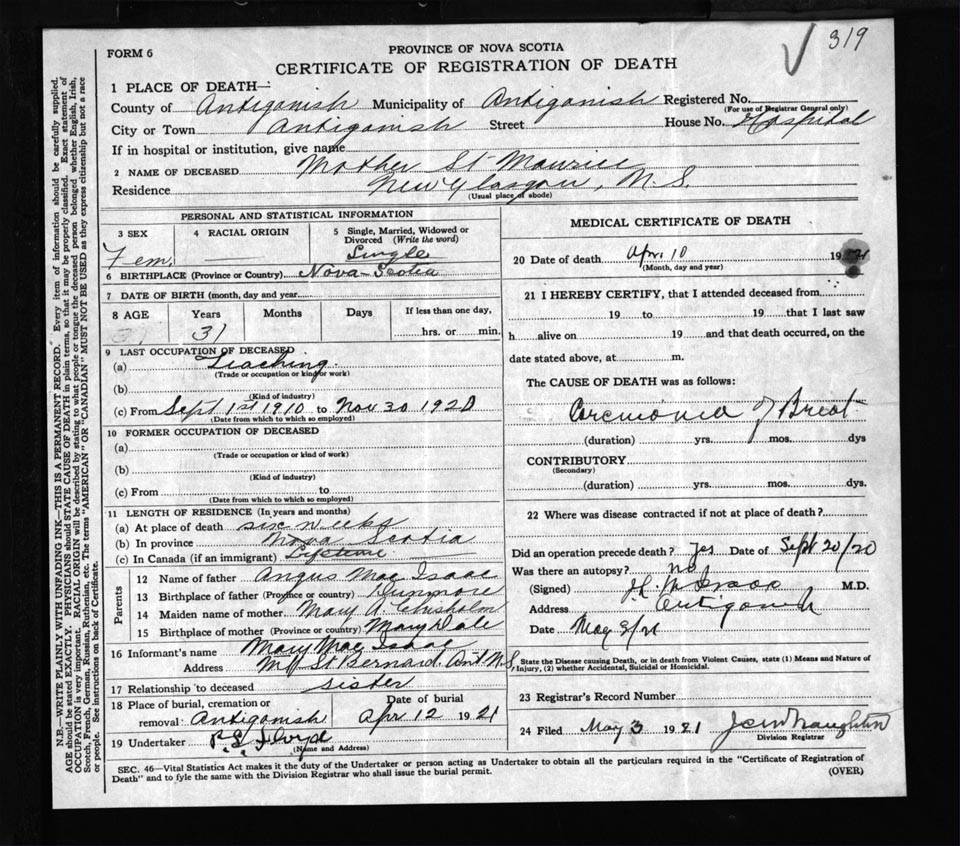 319
FORM 6
PROVINCE OF NOVA SCOTIA
CERTIFICATE OF REGISTRATION OF DEATH
1 PLACE OF DEATH—
County of Antigonish Municipality of Antigonish Registered No.
(For use of Registrar General only)
City or Town Antigonish Street House No. Hospital
If in hospital or institution, give name
2 NAME OF DECEASED Mother St Maurice
Residence New Glasgow, N.S.
(Usual place of abode)
PERSONAL AND STATISTICAL INFORMATION
3 SEX 4 RACIAL ORIGIN 5 Single, Married, Widowed or Divorced (Write the word)
Fem. Single
6 BIRTHPLACE (Province or Country) Nova Scotia
7 DATE OF BIRTH (month, day and year)
8 AGE Years Months Days If less than one day,
31 hrs. or min.
9 LAST OCCUPATION OF DECEASED
(a) Teaching
(Trade or occupation or kind of work)
(b)
(Kind of industry)
(c) From Sept 1st 1910 to Nov 30 1920
(Date from which to which so employed)
10 FORMER OCCUPATION OF DECEASED
(a)
(Trade or occupation or kind of work)
(b)
(Kind of industry)
(c) From to
(Date from which to which so employed)
11 LENGTH OF RESIDENCE (In years and months)
(a) At place of death six weeks
(b) In province Nova Scotia
(c) In Canada (if an immigrant) Lifetime
Parents
12 Name of father Angus Mac Isaac
13 Birthplace of father (Province or country) Dunmore
14 Maiden name of mother Mary A Chisholm
15 Birthplace of mother (Province or country) Marydale
16 Informant's name Mary Mac Isaac
Address Mt St Bernard. Ant N.S.
17 Relationship to deceased sister
18 Place of burial, cremation or Date of burial
removal Antigonish Apr 12 1921
19 Undertaker P.S. Floyd
(Name and Address)
MEDICAL CERTIFICATE OF DEATH
20 Date of death Apr 10 1921
(Month, day and year)
21 I HEREBY CERTIFY, that I attended deceased from
19 to 19 that I last saw
h alive on 19 and that death occurred, on the
date stated above, at m.
The CAUSE OF DEATH was as follows:
of Breast
(duration) yrs. mos. dys
CONTRIBUTORY
(Secondary)
(duration) yrs. mos. dys.
22 Where was disease contracted if not at place of death?
Did an operation precede death? Yes Date of Sept 20/20
Was there an autopsy? No
(Signed) M.D.
Address Antigonish
Date May 3/21
State the Disease causing Death, or in death from Violent Causes, state (1) Means and Nature of
Injury, (2) whether Accidental, Suicidal or Homicidal.
23 Registrar's Record Number
24 Filed May 3 1921
Division Registrar
SEC. 46—Vital Statistics Act makes it the duty of the Undertaker or person acting as Undertaker to obtain all the particulars required in the "Certificate of Registration of
Death" and to fyle the same with the Division Registrar who shall issue the burial permit. (OVER)
N.B.—WRITE PLAINLY WITH UNFADING INK—THIS IS A PERMANENT RECORD. Every item of information should be carefully supplied.
AGE should be stated EXACTLY. PHYSICIANS should STATE CAUSE OF DEATH in plain terms, so that it may be properly classified. Exact statement of
OCCUPATION is very important. RACIAL ORIGIN will be described by stating to what people or tongue the deceased person belonged whether English, Irish,
Scotch, French, German, Russian, Ruthenian, etc. The terms "AMERICAN" OR CANADIAN" MUST NOT BE USED as they express citizenship but not a race
or people. See instructions on back of Certificate.